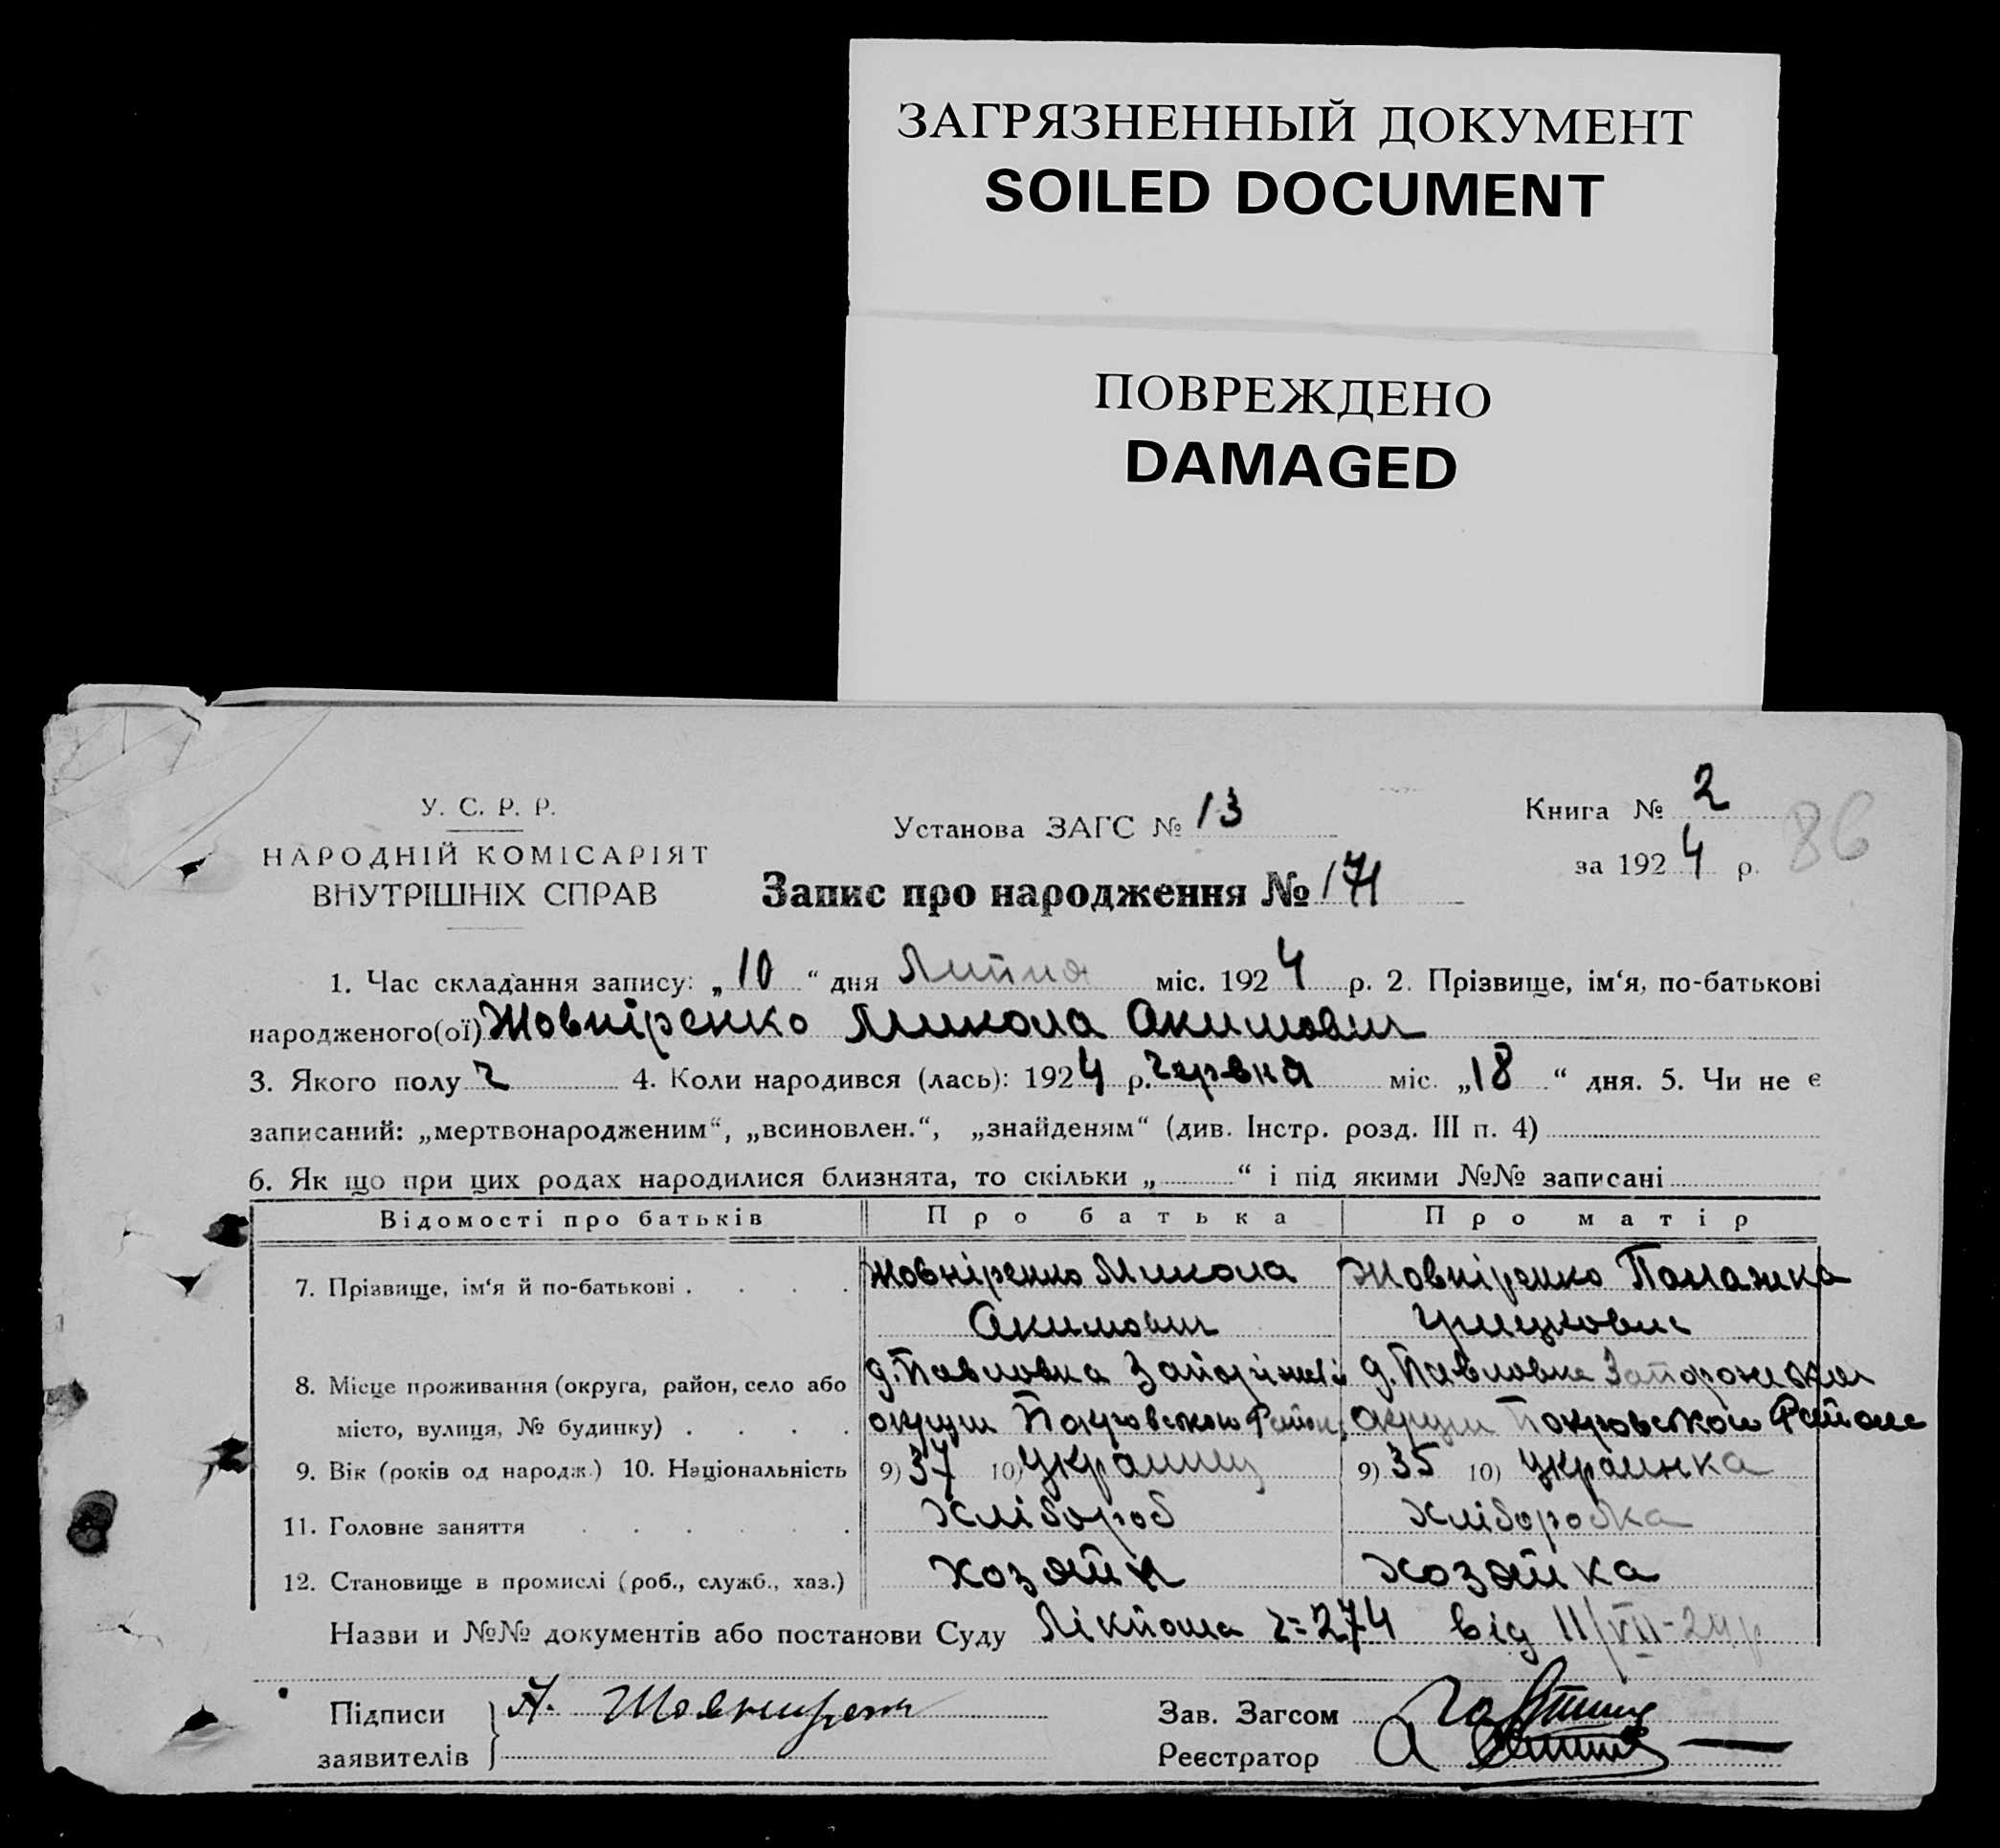 ЗАГРЯЗНЕННЫЙ ДОКУМЕНТ
SOILED DOCUMENT
ПОВРЕЖДЕНО
DAMAGED
У. С. Р. Р.
НАРОДНІЙ КОМІСАРІЯТ
ВНУТРІШНІХ СПРАВ
Установа ЗАГС № 13
Книга № 2
за 1924 р.
86
Запис про народження № 171
1. Час складання запису: „10“ дня Липня міс. 1924 р. 2. Прізвище, ім‘я, по-батькові
народженого(ої) Жовніренко Микола Акимович
3. Якого полу ч 4. Коли народився (лась): 1924 р. червня міс. „18“ дня. 5. Чи не є
записаний: „мертвонародженим“, „всиновлен.“, „знайденям“ (див. Інстр. розд. III п. 4)
6. Як що при цих родах народилися близнята, то скільки „ “ і під якими №№ записані
Відомості про батьків Про батька Про матір
7. Прізвище, ім‘я й по-батькові . . . . Жовніренко Микола Жовніренко Палажка
Акимович
8. Місце проживання (округа, район, село або д. Павловка д. Павловка
місто, вулиця, № будинку) . . . . округи Покровського Району округи Покровського Району
9. Вік (років од народж.) 10. Національність 9) 37 10) Украинец 9) 35 10) Украинка
11. Головне заняття . . . . . . Хлібороб Хліборобка
12. Становище в промислі (роб., служб., хаз.) Хозяйн Хозяйка
Назви и №№ документів або постанови Суду ч=274 від 11/VII-24 р
Підписи
заявителів
А.
Зав. Загсом
Реєстратор